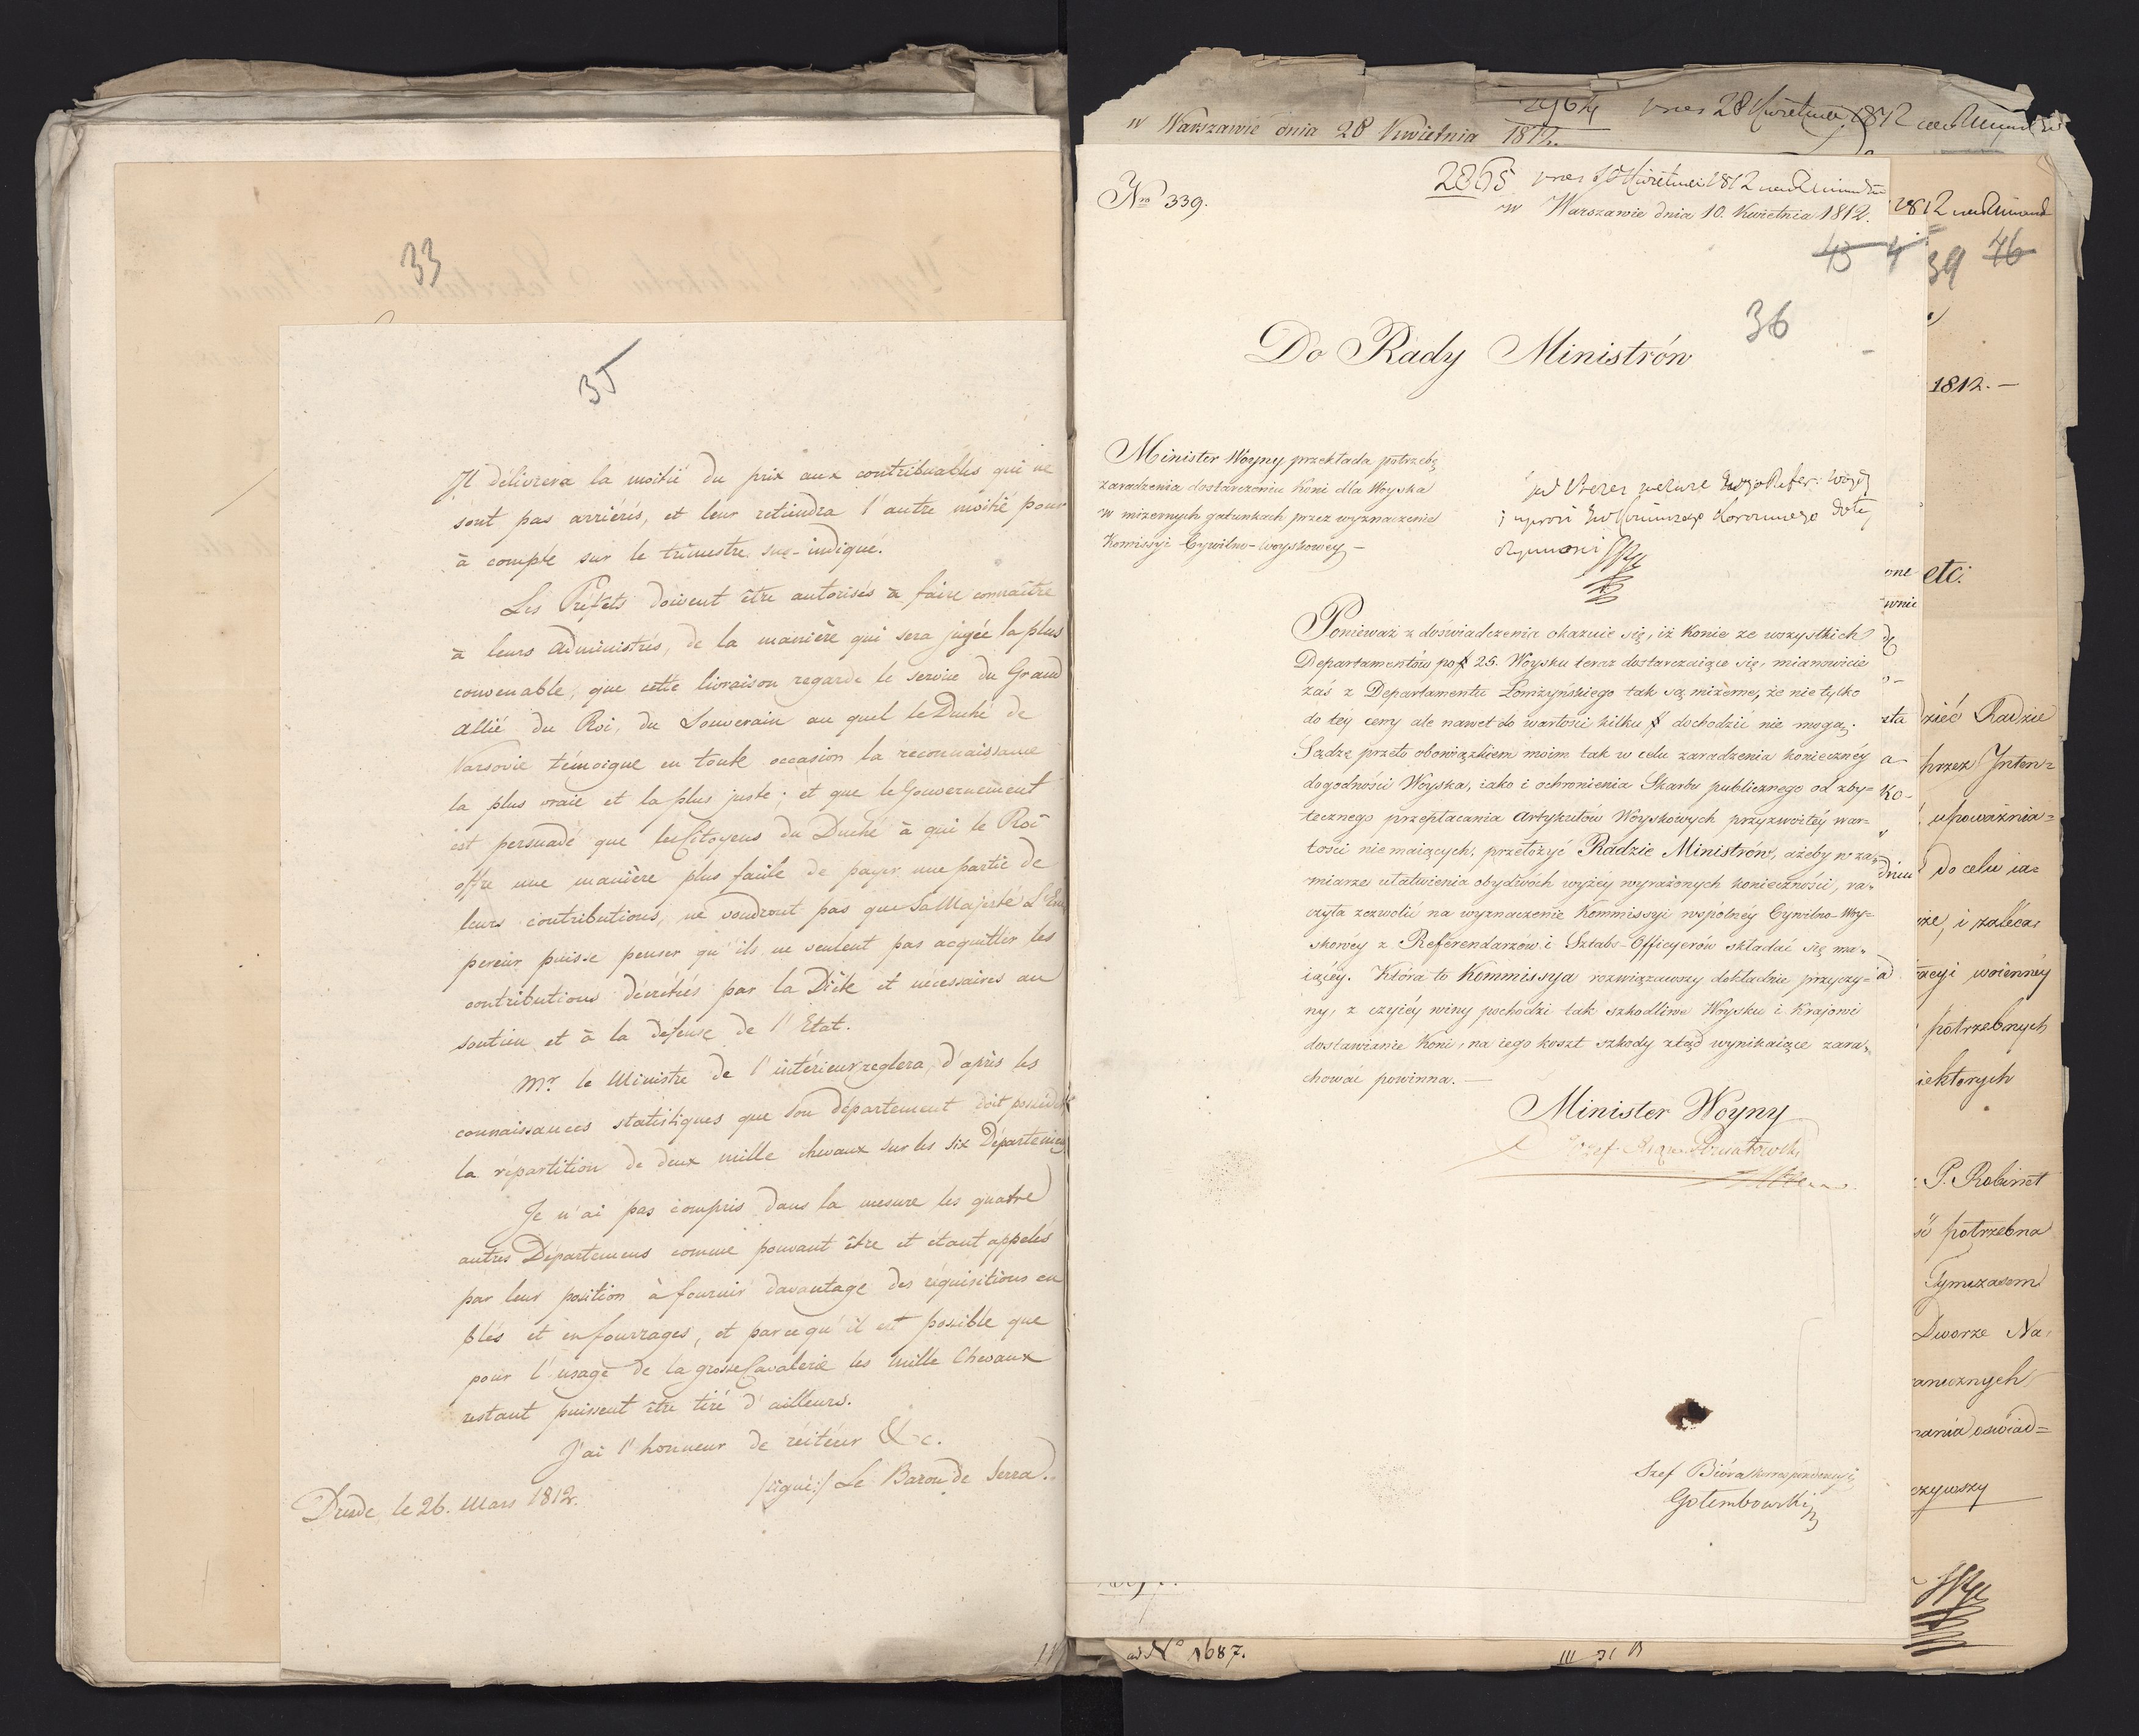 33
35
Il délivrera la moitié du prix aux contribuables qui ne
sont pas arriérés, et leur retiendra l'autre moitié pour
à compte sur le trimestre sus-indiqué.
Les Préfets doivent être autorisés à faire connaître
à leurs administrés, de la manière qui sera jugée la plus
convenable, que cette livraison regarde le service du Grand
allié du Roi, du Souverain au quel le Duché de
Varsovie témoigne en toute occasion la reconnaissance
la plus vraie et la plus juste; et que le Gouvernement
est persuadé que les Citoyens du Duché à qui le Roi
offre une manière plus facile de payer une partie de
leurs contributions, ne voudront pas que Sa Majesté L'Em
pereur puisse penser qu'ils ne veulent pas acquitter les
contributions décrétées par la Diète et nécessaires au
soutien et à la défense de l'Etat.
Mr. le Ministre de l'intérieur reglera, d'après les
connaissances statistiques que son département doit posséder
la répartition de deux mille chevaux sur les six Départemens
Je n'ai pas compris dans la mesure les quatre
autres Départemens comme pouvant être et étant appelés
par leur position à fournir davantage des réquisitions en
blés et en fourrages, et parce qu'il est possible que
pour l'usage de la grosse Cavalerie les mille Chevaux
restant puissent être tiré d'ailleurs.
J'ai l'honneur de réitérer &c.
/signé:/ Le Baron de Serra.
Dresde, le 26. Mars 1812.
w Warszawie dnia 28 Kwietnia 1812.
2964
28 Kwietnia 1812
Nro 339.
2865
Kwietnia 1812
w Warszawie dnia 10. Kwietnia 1812.
43 4
36
Do Rady Ministrów
Minister Woyny przekłada potrzebę
zaradzenia dostarczeniu Koni dla Woyska
w mizernych gatunkach przez wyznaczenie
Komissyi Cywilno-Woyskowey –
Ponieważ z doświadczenia okazuie się, iż Konie ze wszystkich
Departamentów po # 25. Woysku teraz dostarczaiące się, mianowicie
zaś z Departamentu Łomżyńskiego tak są mizerne, że nie tylko
do téy ceny ale nawet do wartości kilku # dochodzić nie mogą;
Sądzę przeto obowiązkiem moim tak w celu zaradzenia konieczney
dogodności Woyska, iako i ochronienia Skarbu publicznego od zby=
tecznego przepłacania Artykułów Woyskowych przyzwoitéy war=
tości nie maiących, przełożyć Radzie Ministrów, ażeby w za=
miarze ułatwienia obydwóch wyżéy wyrażonych konieczności, ra=
czyła zezwolić na wyznaczenie Kommissyi wspólnéy Cywilno-Woy=
skowéy z Referendarzów i Sztabs-Officyerów składać się ma=
iącéy. Która to Kommissya rozwiązawszy dokładnie przyczy=
ny, z czyiéy winy pochodzi tak szkodliwe Woysku i Krajowi
dostawianie Koni, na iego koszt szkody ztąd wynikaiące zara=
chować powinna. –
Minister Woyny
Szef Bióra korrespondencyi
Gołembowski
ad No 1687.
39 46
1812. –
etc:
dzieć Radzie
przez Inten=
upoważnia=
do celu ia=
że, i zaleca=
acyi woienney
potrzebnych
iektorych
P. Robinet
potrzebna
Tymczasem
Dworze Na=
anicznych
rania oświad=
czywszy